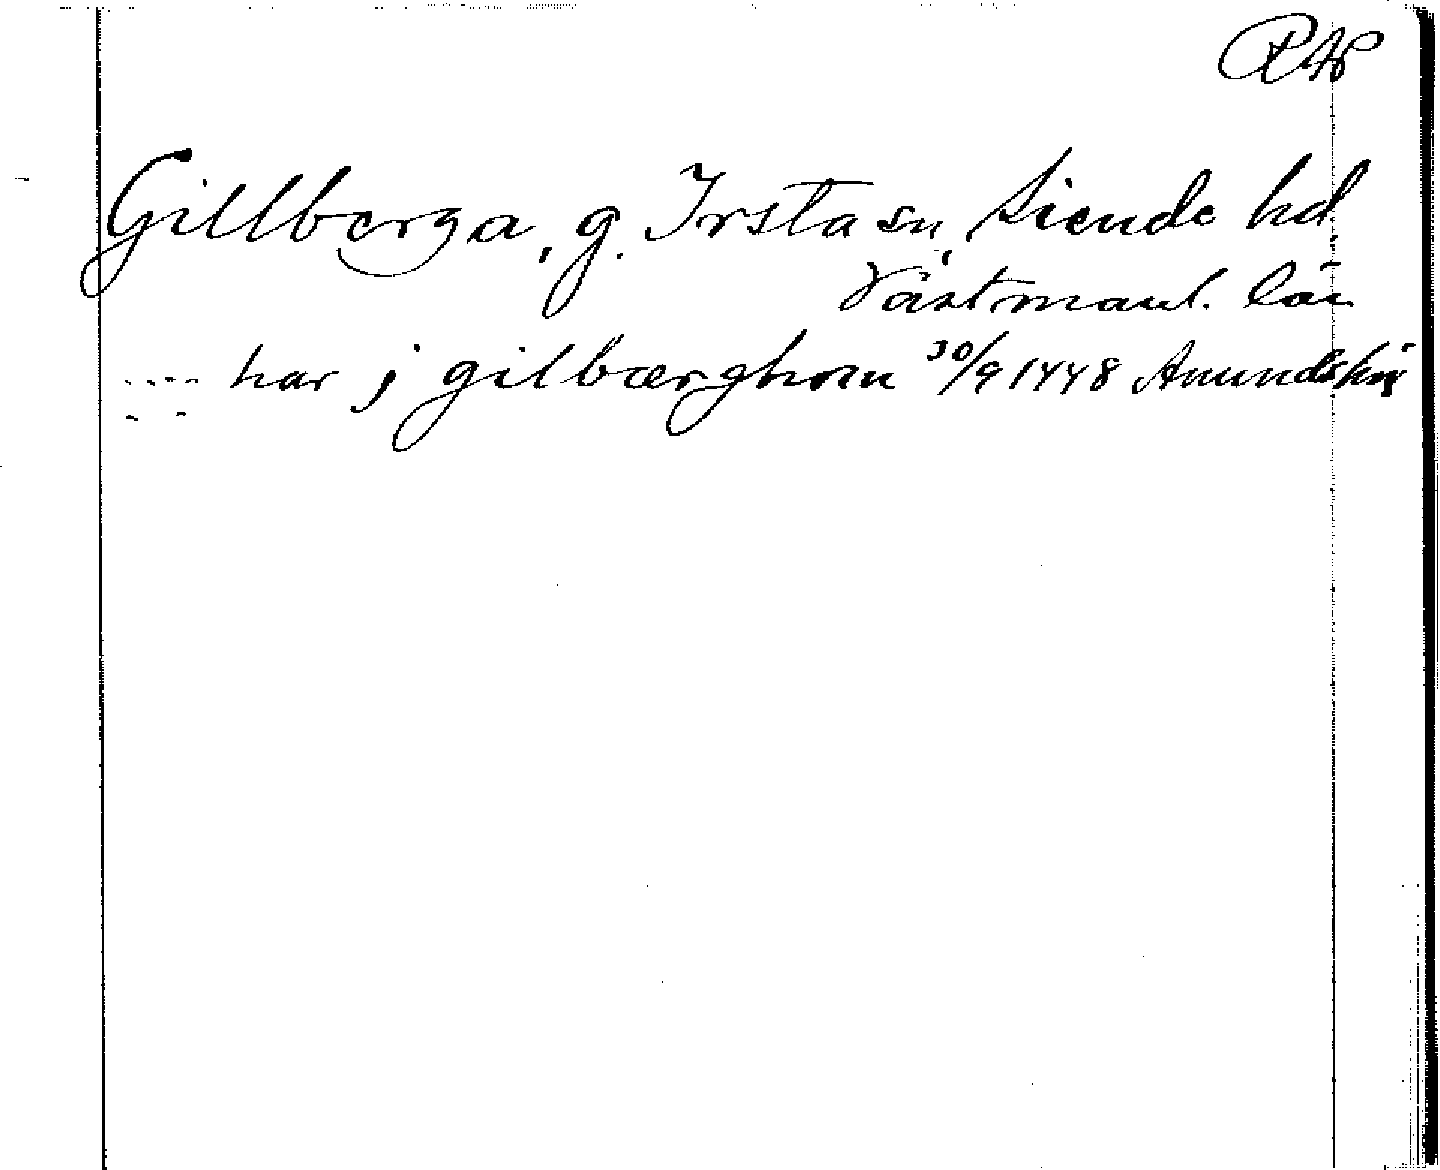 RAP
Gillberga, g. Irsta sn, Siende hd,
Västmanl. län
.... har j gilbærghom 30/9 1448 Amundshög